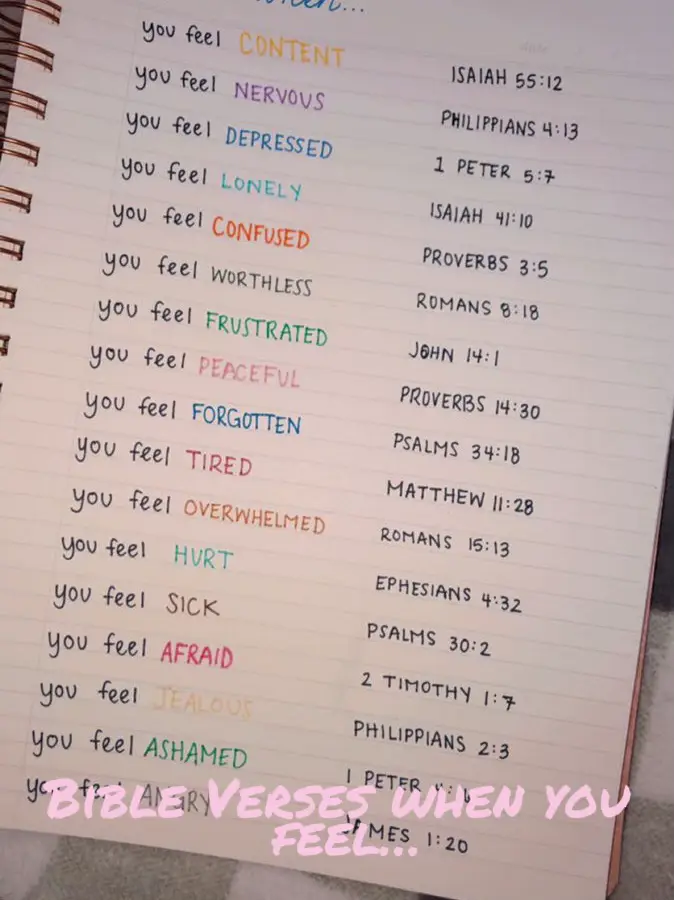 you feel CONTENT ISAIAH 55:12
you feel NERVOUS PHILIPPIANS 4:13
you feel DEPRESSED 1 PETER 5:7
you feel LONELY ISAIAH 41:10
you feel CONFUSED PROVERBS 3:5
you feel WORTHLESS ROMANS 8:18
you feel FRUSTRATED JOHN 14:1
you feel PEACEFUL PROVERBS 14:30
you feel FORGOTTEN PSALMS 34:18
you feel TIRED MATTHEW 11:28
you feel OVERWHELMED ROMANS 15:13
you feel HURT EPHESIANS 4:32
you feel SICK PSALMS 30:2
you feel AFRAID 2 TIMOTHY 1:7
you feel JEALOUS PHILIPPIANS 2:3
you feel ASHAMED 1 PETER
you feel ANGRY JAMES 1:20
Bible Verses when you
feel...